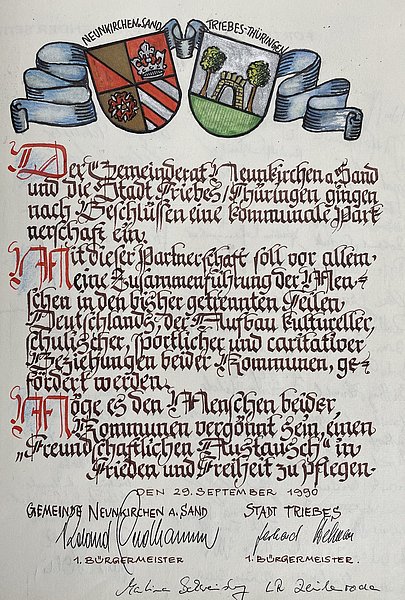 NEUNKIRCHEN A. SAND
TRIEBES-THÜRINGEN
Der Gemeinderat Neunkirchen a. Sand
und die Stadt Triebes/Thüringen gingen
nach Beschlüssen eine kommunale Part
nerschaft ein.
Mit dieser Partnerschaft soll vor allem
eine Zusammenführung der Men-
schen in den bisher getrennten Teilen
Deutschlands, der Aufbau kultureller,
schulischer, sportlicher und caritativer
Beziehungen beider Kommunen, ge-
fördert werden.
Möge es den Menschen beider
Kommunen vergönnt sein, einen
„Freundschaftlichen Austausch" in
Frieden und Freiheit zu pflegen.
DEN 29. SEPTEMBER 1990
GEMEINDE NEUNKIRCHEN A. SAND
STADT TRIEBES
1. BÜRGERMEISTER
1. BÜRGERMEISTER.
LR Zeulenroda